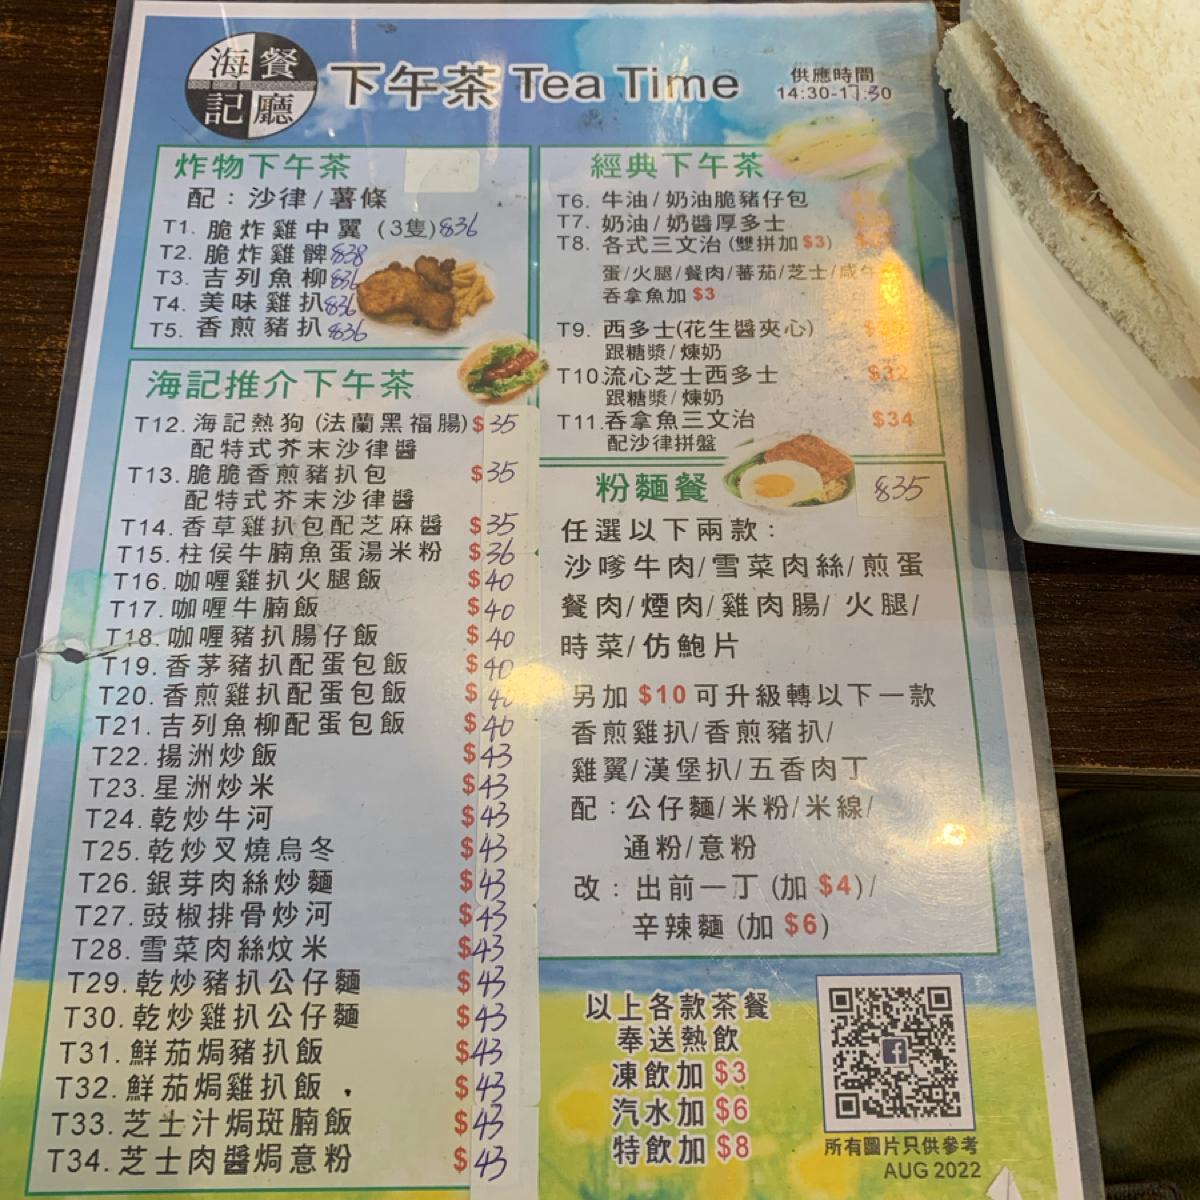 海餐
記廳
下午茶 Tea Time
供應時間
14:30-17:30
炸物下午茶
配：沙律/薯條
T1. 脆炸雞中翼 (3隻) $36
T2. 脆炸雞髀 $38
T3. 吉列魚柳 $36
T4. 美味雞扒 $36
T5. 香煎豬扒 $36
海記推介下午茶
T12. 海記熱狗 (法蘭黑福腸) $35
配特式芥末沙律醬
T13. 脆脆香煎豬扒包 $35
配特式芥末沙律醬
T14. 香草雞扒包配芝麻醬 $35
T15. 柱侯牛腩魚蛋湯米粉 $36
T16. 咖喱雞扒火腿飯 $40
T17. 咖喱牛腩飯 $40
T18. 咖喱豬扒腸仔飯 $40
T19. 香茅豬扒配蛋包飯 $40
T20. 香煎雞扒配蛋包飯 $40
T21. 吉列魚柳配蛋包飯 $40
T22. 揚洲炒飯 $43
T23. 星洲炒米 $43
T24. 乾炒牛河 $43
T25. 乾炒叉燒烏冬 $43
T26. 銀芽肉絲炒麵 $43
T27. 豉椒排骨炒河 $43
T28. 雪菜肉絲炆米 $43
T29. 乾炒豬扒公仔麵 $43
T30. 乾炒雞扒公仔麵 $43
T31. 鮮茄焗豬扒飯 $43
T32. 鮮茄焗雞扒飯 $43
T33. 芝士汁焗斑腩飯 $43
T34. 芝士肉醬焗意粉 $43
經典下午茶
T6. 牛油/奶油脆豬仔包
T7. 奶油/奶醬厚多士
T8. 各式三文治 (雙拼加 $3)
蛋/火腿/餐肉/蕃茄/芝士/咸牛
吞拿魚加 $3
T9. 西多士(花生醬夾心)
跟糖漿/煉奶
T10. 流心芝士西多士 $32
跟糖漿/煉奶
T11. 吞拿魚三文治 $34
配沙律拼盤
粉麵餐 $35
任選以下兩款：
沙嗲牛肉/雪菜肉絲/煎蛋
餐肉/煙肉/雞肉腸/火腿/
時菜/仿鮑片
另加 $10 可升級轉以下一款
香煎雞扒/香煎豬扒/
雞翼/漢堡扒/五香肉丁
配：公仔麵/米粉/米線/
通粉/意粉
改：出前一丁 (加 $4)/
辛辣麵 (加 $6)
以上各款茶餐
奉送熱飲
凍飲加 $3
汽水加 $6
特飲加 $8
所有圖片只供參考
AUG 2022